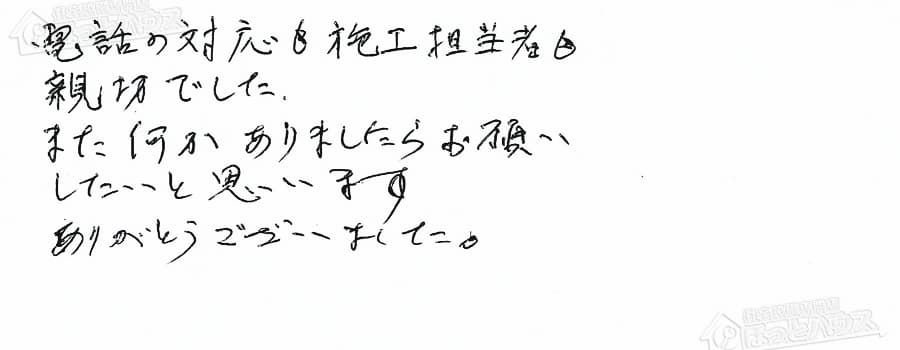 電話の対応も施工担当者も
親切でした。
また何かありましたらお願い
したいと思います
ありがとうございました。
住宅設備専門店
ほっとハウス
住宅設備専門店
ほっとハウス